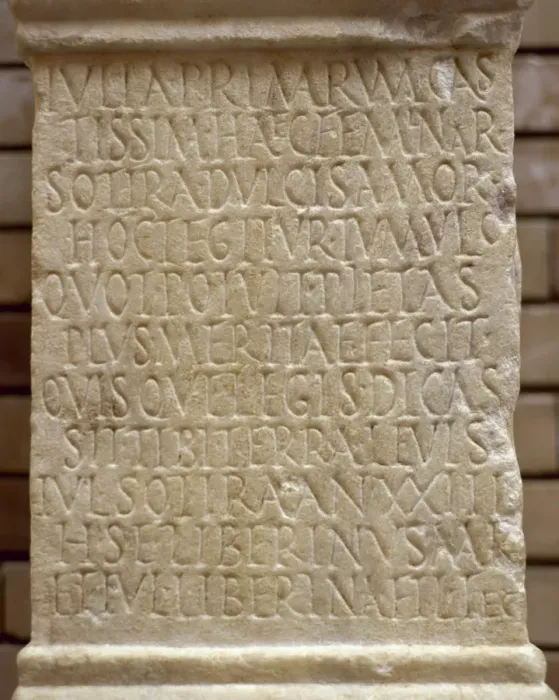 IVLIA PRIMARVM CAS
TISSIM HAEC FEMINAR
SOTIRA DVLCIS AMOR
HOC LEGITVR TVMVLO
QVOT POTVIT PIETAS
PLVS MERITAE FECIT
QVISQVE LEGIS DICAS
SIT TIBI TERRA LEVIS
IVL SOTIRA AN XXIII
H S E LIBERINVS MAR
ET IVL LIBERINA FIL FEC